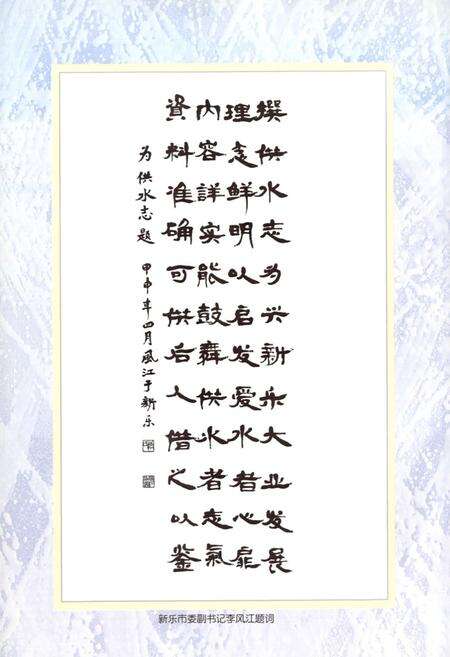 撰供水志为兴新乐大业发展
理念鮮明以启发爱水者心扉
内容詳实能鼓舞供水者志氣
資料准确可供后人借之以鉴
为供水志题 甲申年四月風江于新乐
新乐市委副书记李风江题词